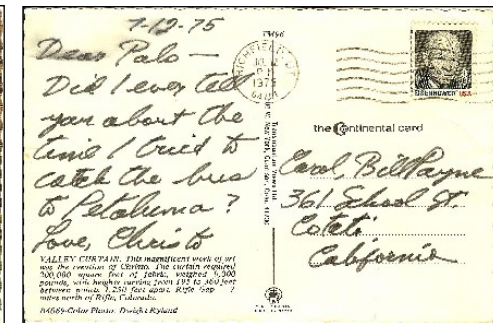 7-12-75
Dear Pals —
Did I ever tell
you about the
time I tried to
catch the bus
to Petaluma?
Love, Christo
VALLEY CURTAIN. This magnificent work of art
was the creation of Christo. The curtain required
200,000 square feet of fabric, weighed 8,000
pounds, with heights curving from 185 to 360 feet
between points 1,250 feet apart. Rifle Gap 7
miles north of Rifle, Colorado.
Color Photo: Dwight Ryland
RICHFIELD
12
PM
1975
EISENHOWER USA
the Continental card
Carol, Bill Payne
361 School St.
Cotati
California